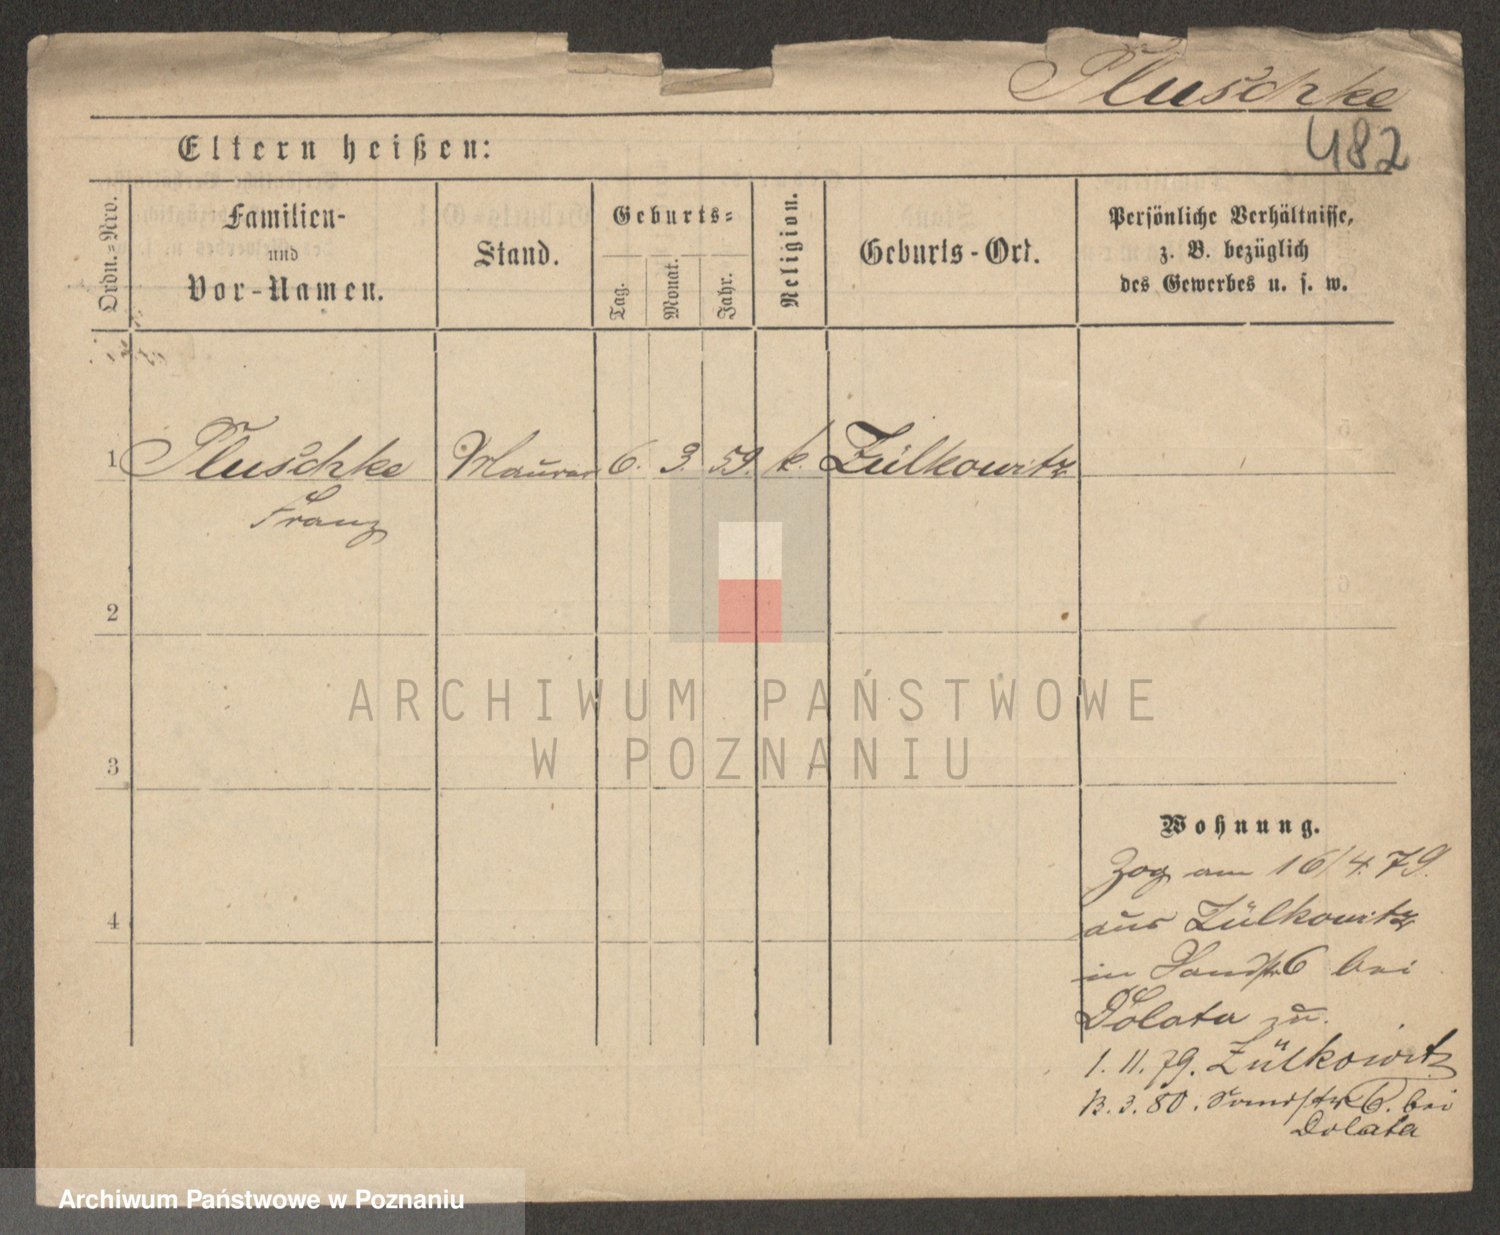 Pluschke
482
Eltern heißen:
Ordn.-Nro.
Familien-
und
Vor-Namen.
Stand.
Geburts-
Tag.
Monat.
Jahr.
Religion.
Geburts-Ort.
Persönliche Verhältnisse,
z. B. bezüglich
des Gewerbes u. s. w.
1 Pluschke Maurer 6. 3. 59. k. Zülkowitz
Franz
2
3
4
ARCHIWUM PAŃSTWOWE
W POZNANIU
Wohnung.
Zog am 16/4.79.
aus Zülkowitz
in Sandstr 6 bei
Dolata zu.
1. 11. 79. Zülkowitz
13. 3. 80. Sandstr 6. bei
Dolata
Archiwum Państwowe w Poznaniu